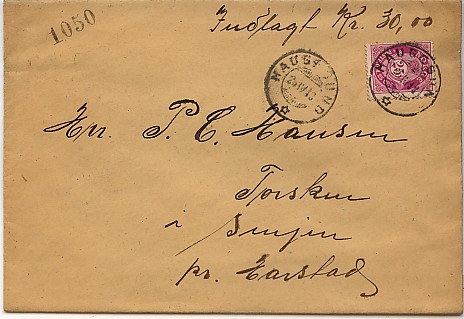 1050
Indlagt Kr. 30,00
HAUGESUND
HAUGESUND
Hr. P. C. Hansen
Torsken
i Senjen
pr. Harstad